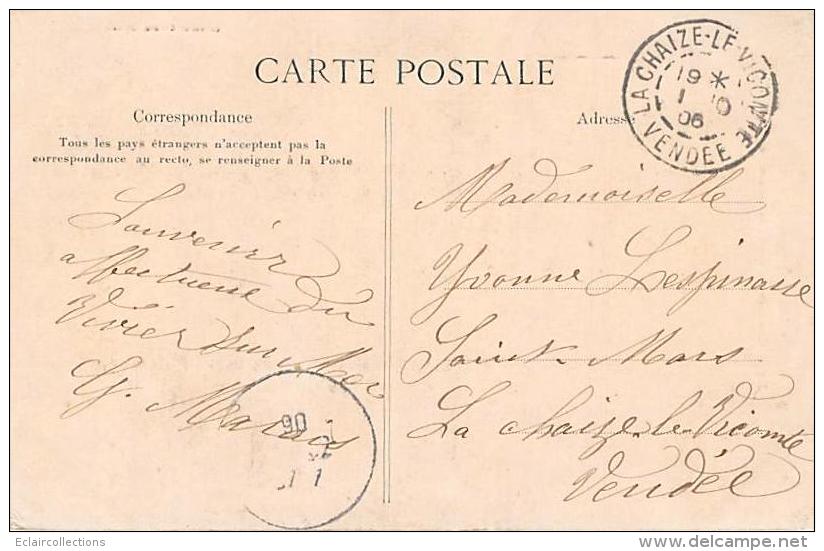 CARTE POSTALE
LA CHAIZE-LE-VICOMTE
19 *
1 10
06
VENDÉE
Correspondance
Tous les pays étrangers n'acceptent pas la
correspondance au recto, se renseigner à la Poste
Adresse
Souvenir
affectueux du
Vivier sur Mer
G. Marais
06
Mademoiselle
Yvonne Lespinasse
Saint-Mars
La Chaize-le-Vicomte
Vendée
Eclaircollections
delcampe.net